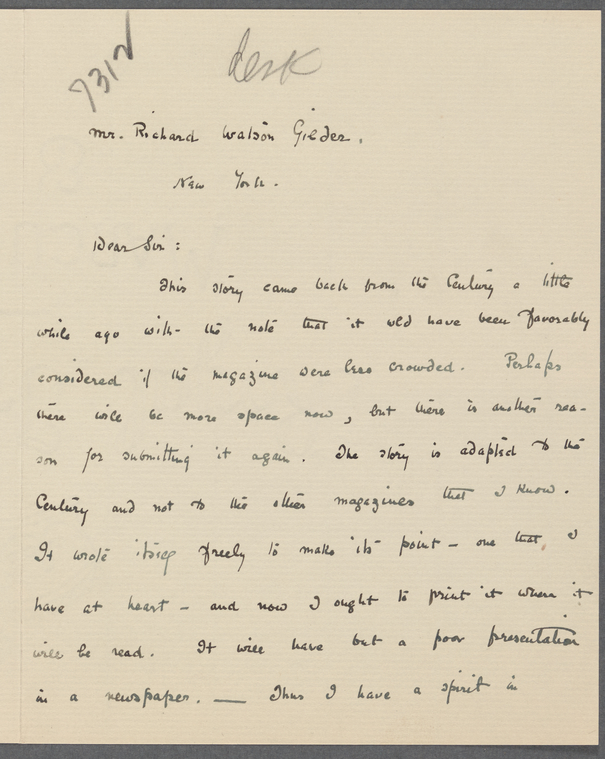 7312
desk
Mr. Richard Watson Gilder,
New York.
Dear Sir:
This story came back from the Century a little
while ago with the note that it wld have been favorably
considered if the magazine were less crowded. Perhaps
there will be more space now, but there is another rea-
son for submitting it again. The story is adapted to the
Century and not to the other magazines that I know.
It wrote itself freely to make its point – one that I
have at heart – and now I ought to print it where it
will be read. It will have but a poor presentation
in a newspaper. — Thus I have a spirit in